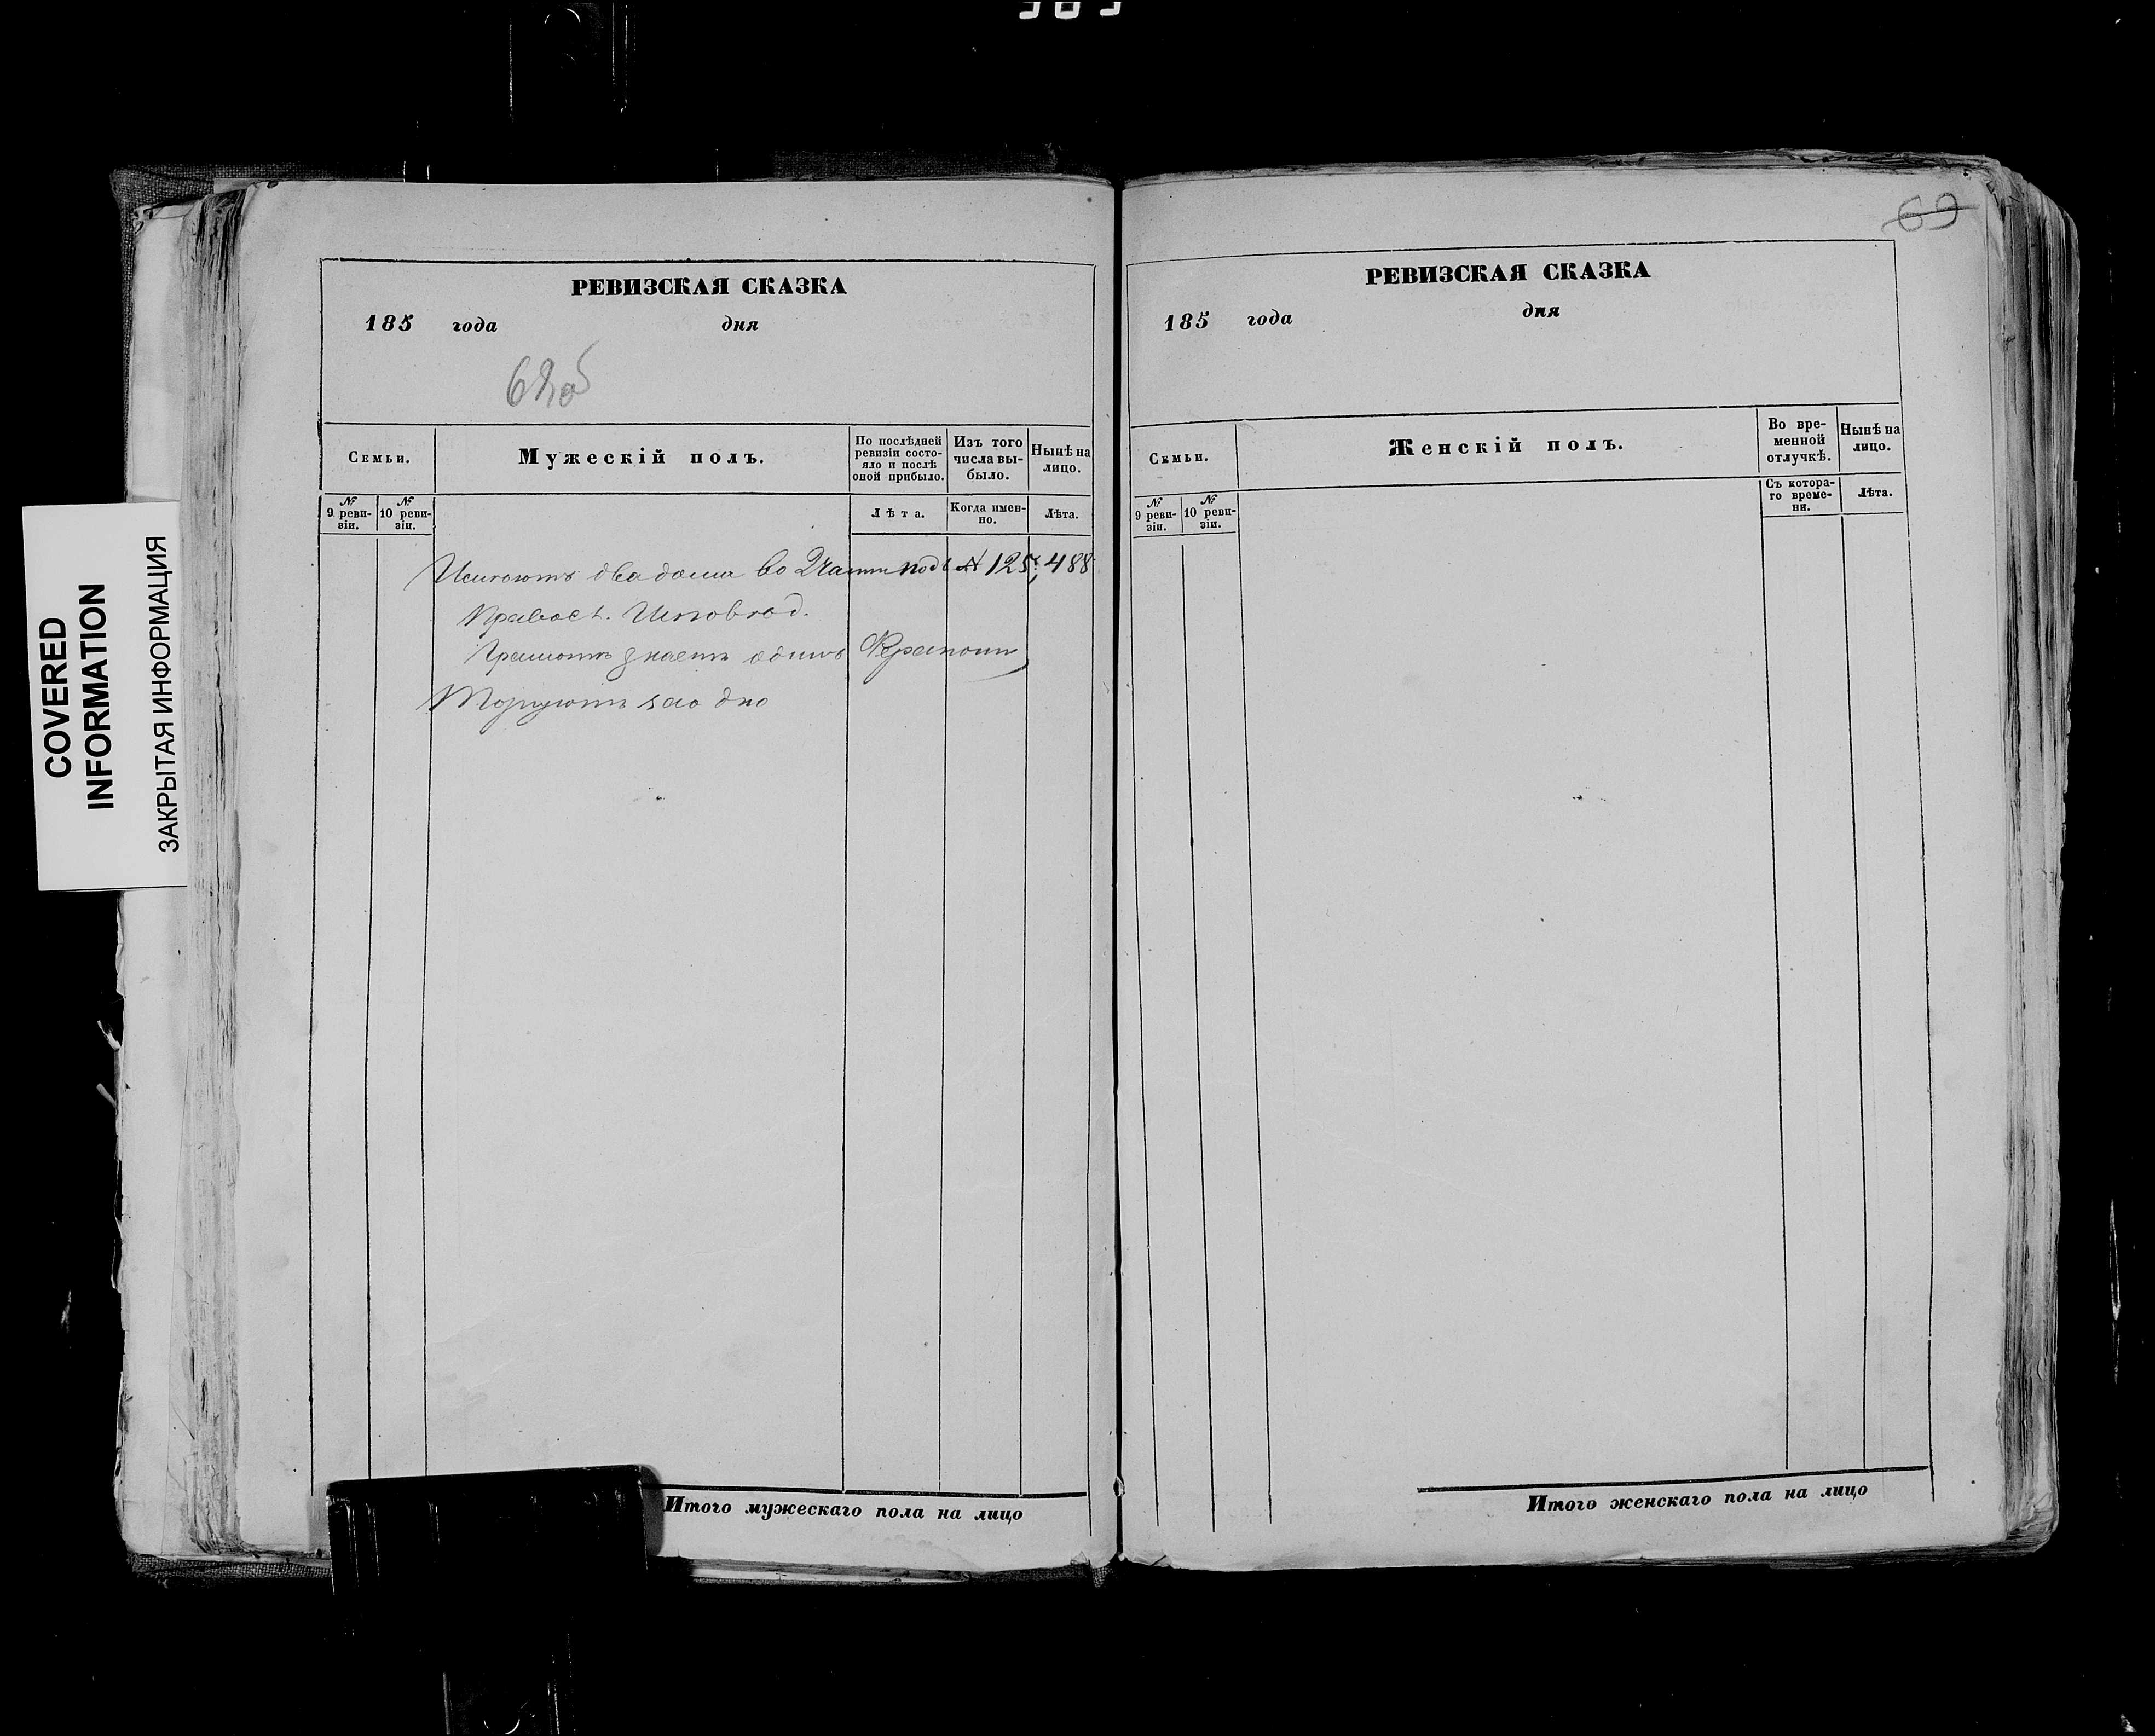 69
COVERED
INFORMATION
ЗАКРЫТАЯ ИНФОРМАЦИЯ
РЕВИЗСКАЯ СКАЗКА
185 года дня
68об
Семьи.
Мужескій полъ.
По послѣдней
ревизіи состо-
яло и послѣ
оной прибыло.
Изъ того
числа вы-
было.
Нынѣ на
лицо.
№
9 реви-
зіи.
№
10 реви-
зіи.
Лѣта.
Когда имен-
но.
Лѣта.
Имѣютъ два дома во 2 Части подъ № 125, 488
Правосл. Исповѣд.
Грамотѣ знаетъ одинъ
Торгуютъ за одно
Итого мужескаго пола на лицо
РЕВИЗСКАЯ СКАЗКА
185 года дня
Семьи.
Женскій полъ.
Во вре-
менной
отлучкѣ.
Нынѣ на
лицо.
№
9 реви-
зіи.
№
10 реви-
зіи.
Съ котора-
го време-
ни.
Лѣта.
Итого женскаго пола на лицо